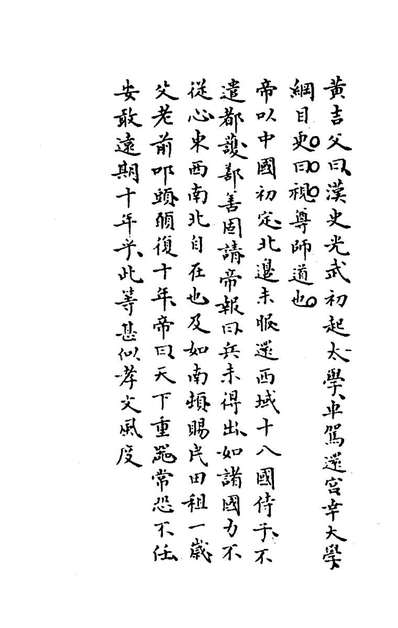 黃吉父曰漢史光武初起太學車駕還宮幸大學
綱目史曰視尊師道也
帝以中國初定北邊未服還西域十八國侍子不
遣都護鄯善固請帝報曰兵未得出如諸國力不
從心東西南北自在也及如南頓賜民田租一歲
父老前叩頭願復十年帝曰天下重器常恐不任
安敢遠期十年乎此等甚似孝文風度